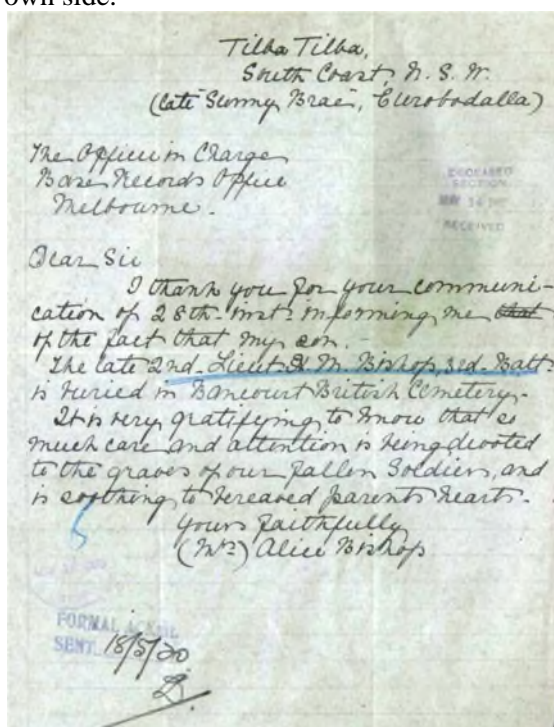 own side.
Tilba Tilba,
South Coast, N. S. W.
(late Sunny Brae, Eurobodalla)
The Officer in Charge
Base Records Office
Melbourne.
DECEASED
SECTION
MAY 14
RECEIVED
Dear Sir
I thank you for your communi-
cation of 28th. inst. informing me that
of the fact that my son. -
The late 2nd. Lieut H. M. Bishop, 3rd. Batt
is buried in Bancourt British Cemetery.
It is very gratifying to know that so
much care and attention is being devoted
to the graves of our fallen Soldiers, and
is soothing to bereaved parents hearts.
Yours faithfully
(Mrs) Alice Bishop
FORMAL
SENT 18/5/20